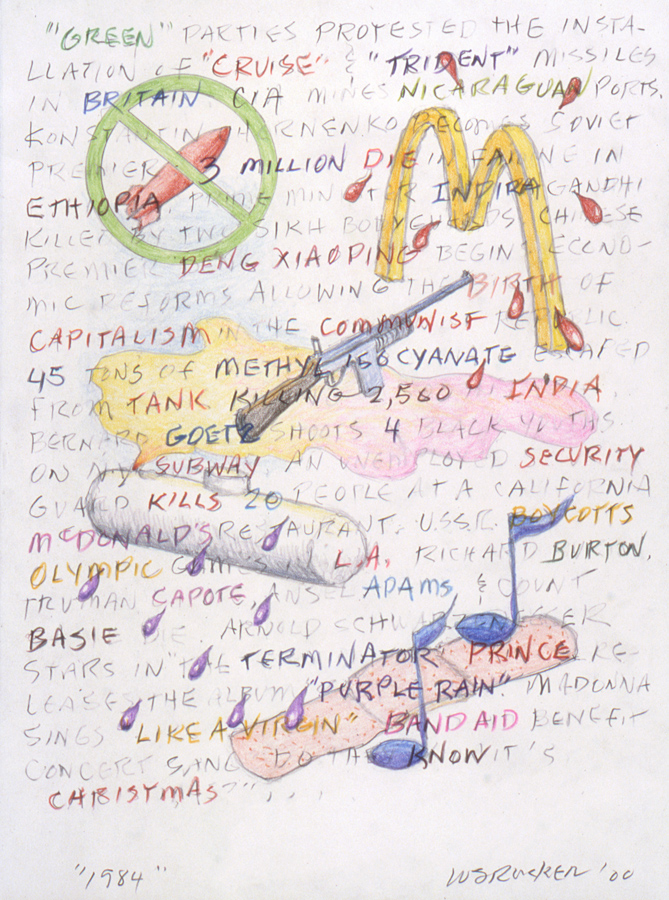 "'GREEN" PARTIES PROTESTED THE INSTA-
LLATION OF "CRUISE" & "TRIDENT" MISSILES
IN BRITAIN. CIA MINES NICARAGUAN PORTS.
KONSTANTIN CHORNENKO BECOMES SOVIET
PREMIER. 3 MILLION DIE IN FAMINE IN
ETHIOPIA. PRIME MINISTER INDIRA GANDHI
KILLED BY TWO SIKH BODYGUARDS. CHINESE
PREMIER DENG XIAOPING BEGINS ECONO-
MIC REFORMS ALLOWING THE BIRTH OF
CAPITALISM IN THE COMMUNIST REPUBLIC.
45 TONS OF METHYL ISOCYANATE ESCAPED
FROM TANK KILLING 2,500 IN INDIA.
BERNARD GOETZ SHOOTS 4 BLACK YOUTHS
ON NY SUBWAY. AN UNEMPLOYED SECURITY
GUARD KILLS 20 PEOPLE AT A CALIFORNIA
McDONALD'S RESTAURANT. U.S.S.R. BOYCOTTS
OLYMPIC GAMES IN L.A. RICHARD BURTON,
TRUMAN CAPOTE, ANSEL ADAMS, & COUNT
BASIE DIE. ARNOLD SCHWARZENEGGER
STARS IN "THE TERMINATOR" PRINCE RE-
LEASES THE ALBUM "PURPLE RAIN" MADONNA
SINGS "LIKE A VIRGIN" BAND AID BENEFIT
CONCERT SANG "DO THEY KNOW IT'S
CHRISTMAS?"...
"1984"
WSRUCKER '00